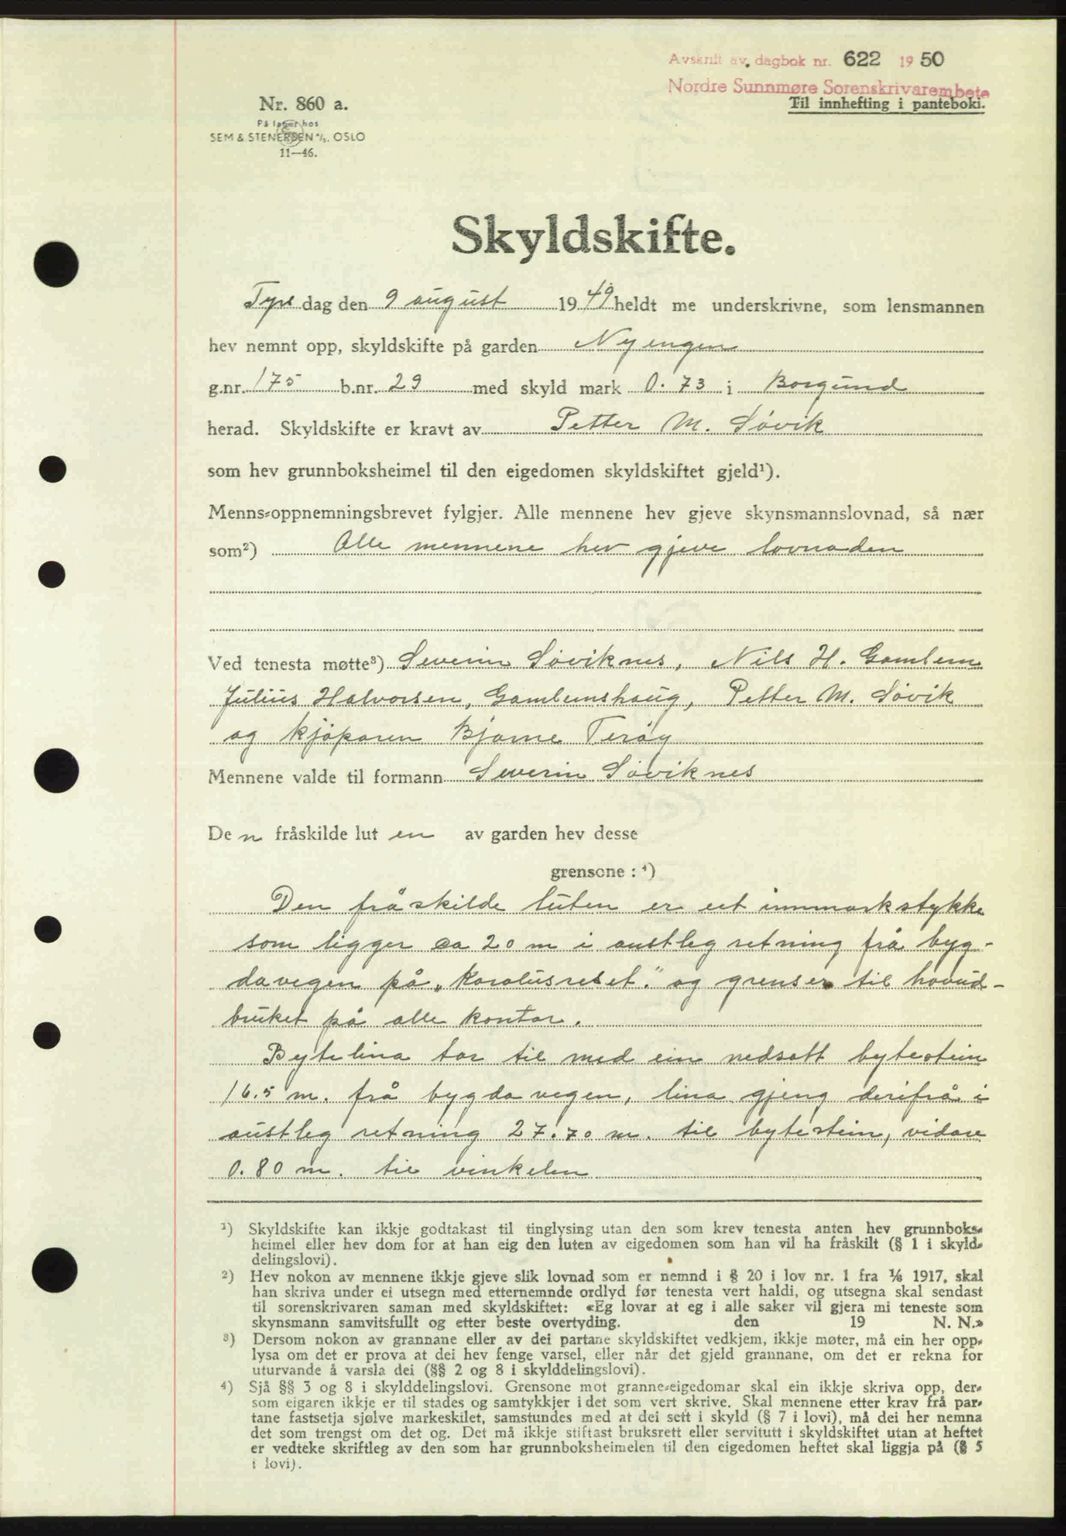 Avskrift av dagbok nr. 622 1950
Nordre Sunnmøre Sorenskrivarembete
Nr. 860 a.
Til innhefting i panteboki.
På lager hos
SEM & STENERSEN A/S. OSLO
11—46.
Skyldskifte.
Tysdag den 9 august 1949 heldt me underskrivne, som lensmannen
hev nemnt opp, skyldskifte på garden Nyengen
g.nr. 175 b.nr. 29 med skyld mark 0.73 i Borgund
herad. Skyldskifte er kravt av Petter M. Søvik
som hev grunnboksheimel til den eigedomen skyldskiftet gjeld¹).
Menns-oppnemningsbrevet fylgjer. Alle mennene hev gjeve skynsmannslovnad, så nær
som²) Alle mennene hev gjeve lovnaden
Ved tenesta møtte³) Severin Søviknes, Nils H. Gamlem
Julius Halvorsen, Gamlemshaug, Petter M. Søvik
og kjøparen Bjarne Terøy
Mennene valde til formann Severin Søviknes
Den fråskilde luten av garden hev desse
grensone : ⁴)
Den fråskilde luten er eit innmarkstykke
som ligger ca 20 m i austleg retning frå byg-
davegen på og grenser til hovud-
bruket på alle kantar.
Bytelina tar til med ein nedsatt bytestein
16.5 m. frå bygdavegen, lina gjeng derifrå i
austleg retning 27.70 m. til bytestein, vidare
0.80 m. til vinkelen
¹) Skyldskifte kan ikkje godtakast til tinglysing utan den som krev tenesta anten hev grunnboks-
heimel eller hev dom for at han eig den luten av eigedomen som han vil ha fråskilt (§ 1 i skyld-
delingslovi).
²) Hev nokon av mennene ikkje gjeve slik lovnad som er nemnd i § 20 i lov nr. 1 fra ⅙ 1917, skal
han skriva under ei utsegn med etternemnde ordlyd før tenesta vert haldi, og utsegna skal sendast
til sorenskrivaren saman med skyldskiftet: «Eg lovar at eg i alle saker vil gjera mi teneste som
skynsmann samvitsfullt og etter beste overtyding. den 19 N. N.»
³) Dersom nokon av grannane eller av dei partane skyldskiftet vedkjem, ikkje møter, må ein her opp-
lysa om det er prova at dei hev fenge varsel, eller når det gjeld grannane, om det er rekna for
uturvande å varsla dei (§§ 2 og 8 i skylddelingslovi).
⁴) Sjå §§ 3 og 8 i skylddelingslovi. Grensone mot granne-eigedomar skal ein ikkje skriva opp, der-
som eigaren ikkje er til stades og samtykkjer i det som vert skrive. Skal mennene etter krav frå par-
tane fastsetja sjølve markeskilet, samstundes med at dei sett i skyld (§ 7 i lovi), må dei her nemna
det som trengst om det og. Det må ikkje stiftast bruksrett eller servitutt i skyldskiftet utan at heftet
er vedteke skriftleg av den som har grunnboksheimelen til den eigedomen heftet skal liggja på (§ 5
i lovi).